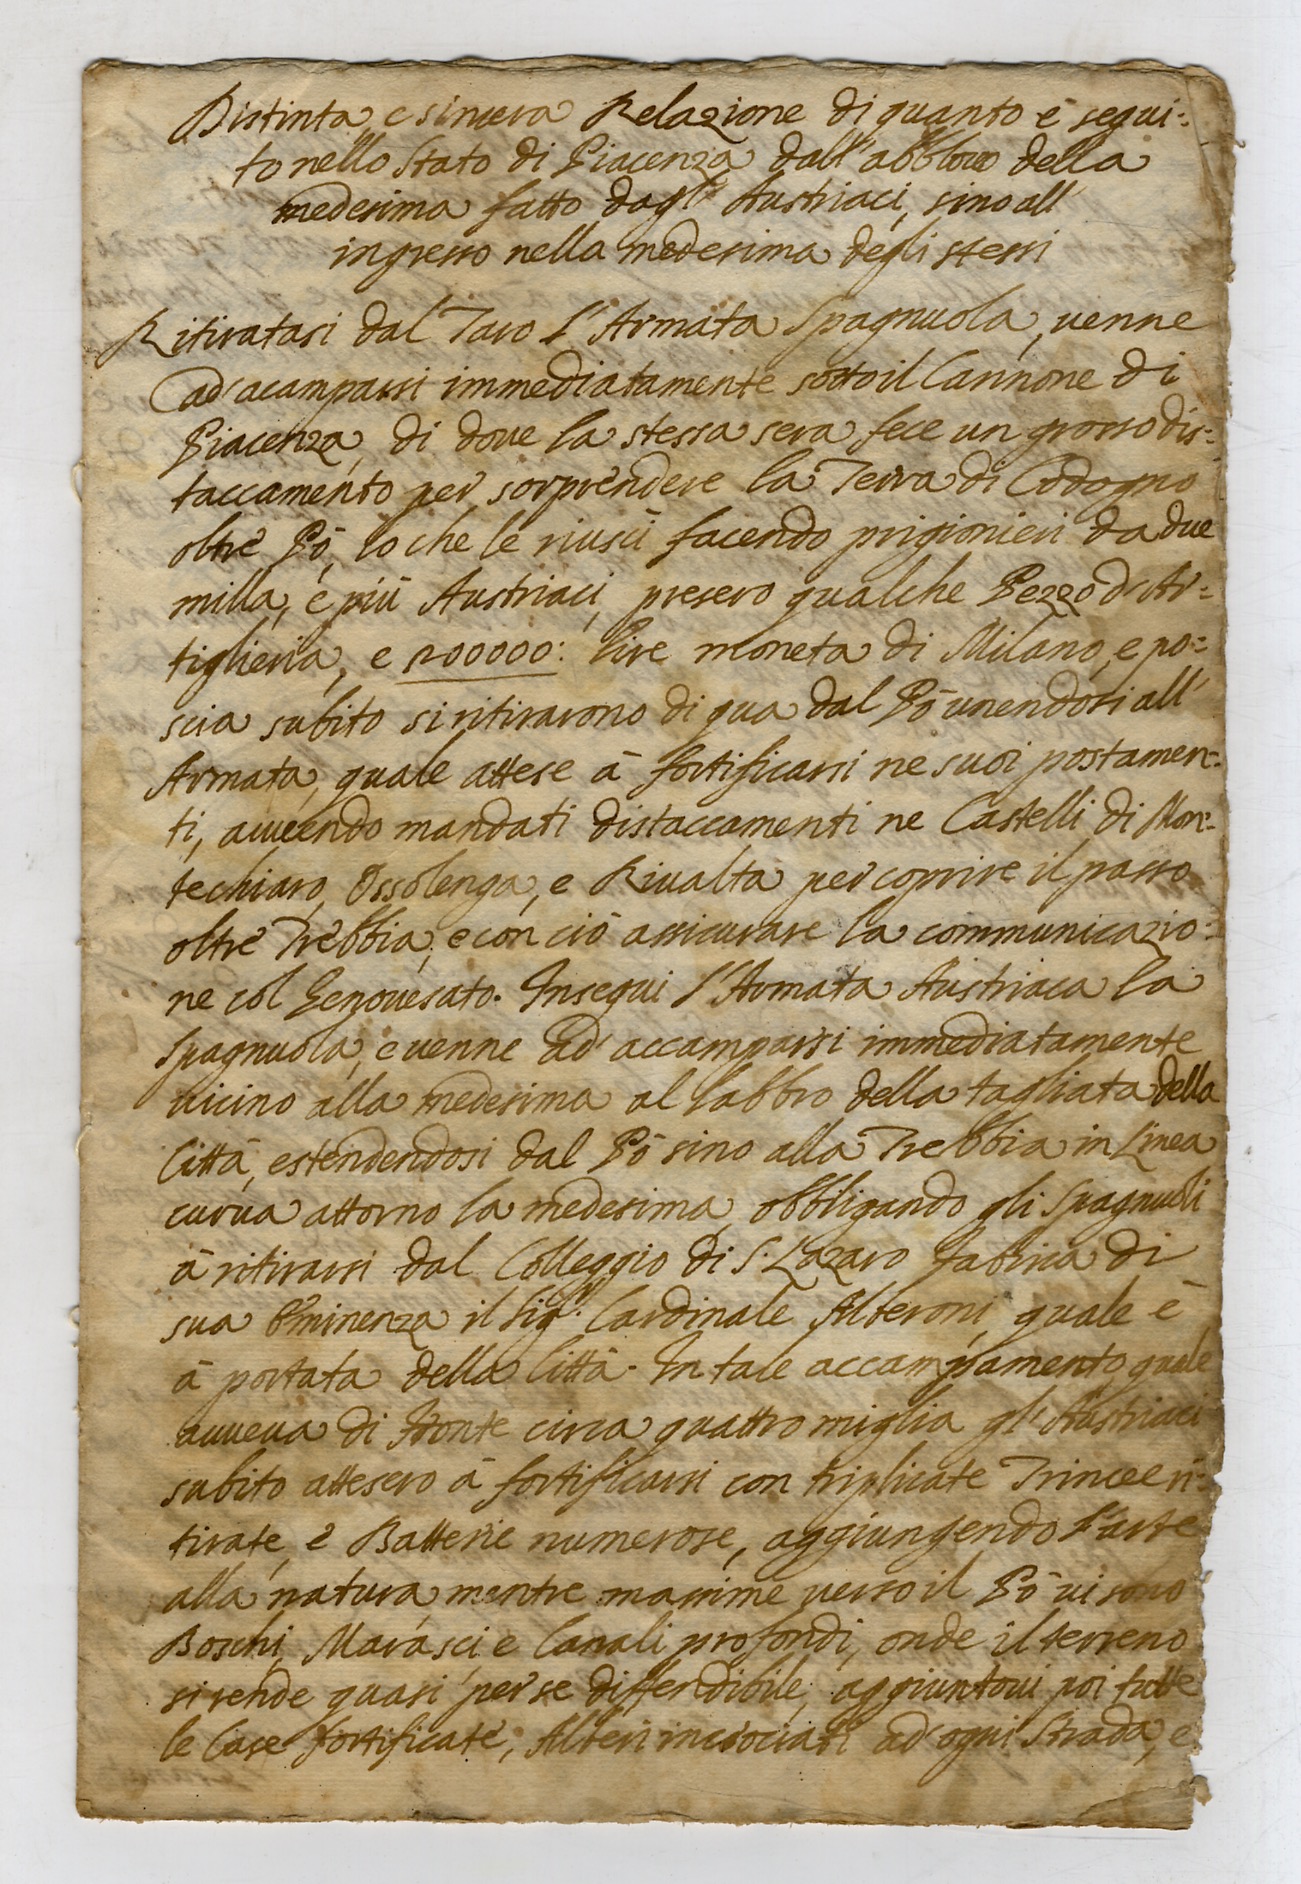 Distinta e sincera Relazione di quanto è segui-
to nello Stato di Piacenza dall'abbloco della
medesima fatto dagli Austriaci, sino all'
ingresso nella medesima degli stessi
Ritiratasi dal Taro l'Armata Spagnuola, venne
ad acamparsi immediatamente sotto il Cannone di
Piacenza, di dove la stessa sera fece un grosso dis-
taccamento per sorprendere la Terra di Codogno
oltre Pò, lo che le riuscì facendo prigionieri da due
milla, e più Austriaci, presero qualche Pezzo d'Ar-
tiglieria, e 200000: lire moneta di Milano, e po-
scia subito si ritirarono di qua dal Pò unendosi all'
Armata, quale attese à fortificarsi ne suoi postamen-
ti, avvendo mandati distaccamenti ne Castelli di Mon-
techiaro, Ossolenga, e Rivalta per coprire il passo
oltre Trebbia, e con ciò assicurare la communicazio-
ne col Genovesato. Inseguì l'Armata Austriaca la
Spagnuola, e venne ad accamparsi immediatamente
vicino alla medesima al labbro della tagliata della
Città, estendendosi dal Pò sino alla Trebbia in Linea
curva attorno la medesima, obbligando gli Spagnuoli
à ritirarsi dal Colleggio di S. Lazaro fabrica di
sua Eminenza il Sig.r Cardinale Alteroni, quale è
à portata della Città. In tale accampamento quale
avveva di Fronte circa quattro miglia gl'Austriaci
subito attesero à fortificarsi con triplicate Trincee ri-
tirate, è Batterie numerose, aggiungendo l'arte
alla natura mentre massime verso il Pò vi sono
Boschi, Marasci e Canali profondi, onde il terreno
si rende quasi per se diffendibile, aggiuntovi poi tutte
le Case fortificate, Alberi incrociati ad ogni Strada, e